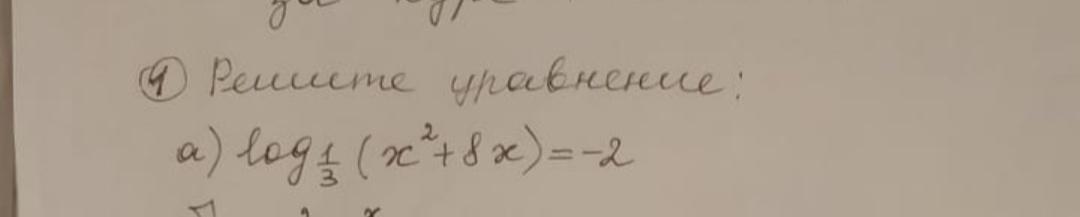 ① Решите уравнение:
а) log 1/3 (x²+8x)=-2